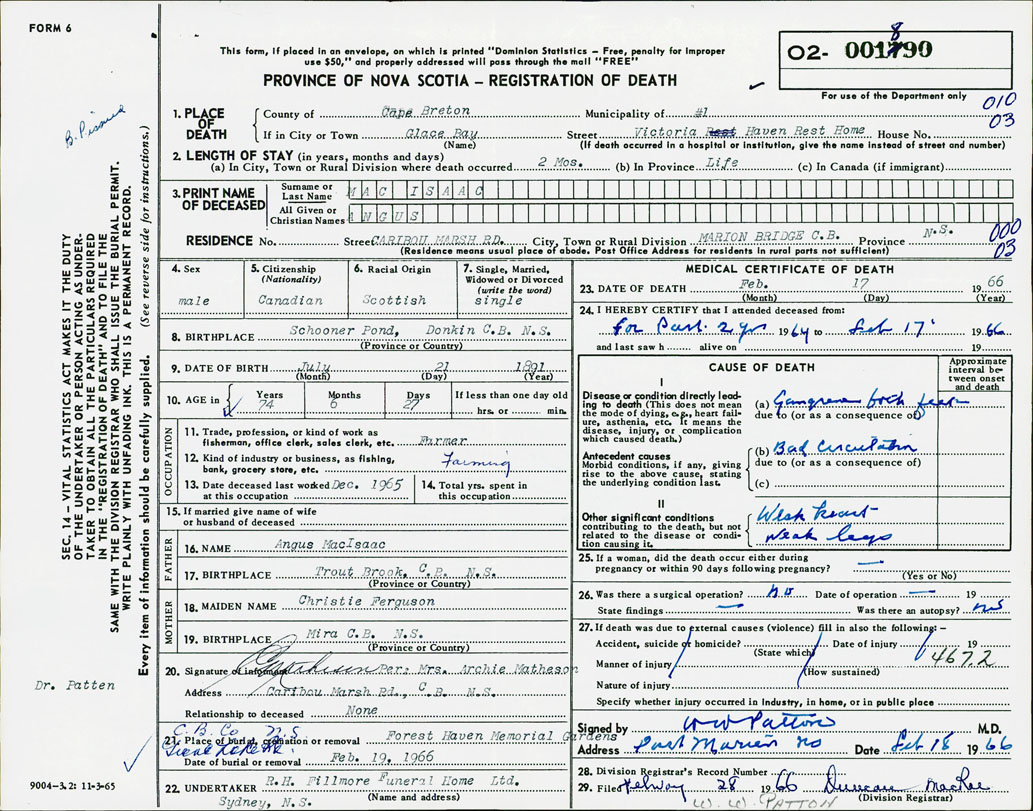 FORM 6
This form, if placed in an envelope, on which is printed "Dominion Statistics – Free, penalty for improper
use $50," and properly addressed will pass through the mail "FREE"
PROVINCE OF NOVA SCOTIA – REGISTRATION OF DEATH
02- 001890
For use of the Department only
010
03
1. PLACE OF DEATH
County of Cape Breton Municipality of #1
If in City or Town Glace Bay Street Victoria Rest Haven Rest Home House No.
(Name) (If death occurred in a hospital or institution, give the name instead of street and number)
2. LENGTH OF STAY (in years, months and days)
(a) In City, Town or Rural Division where death occurred 2 Mos. (b) In Province Life (c) In Canada (if immigrant)
3. PRINT NAME OF DECEASED
Surname or Last Name MAC ISAAC
All Given or Christian Names ANGUS
RESIDENCE No. Street CARIBOU MARSH RD. City, Town or Rural Division MARION BRIDGE C.B. Province N.S.
(Residence means usual place of abode. Post Office Address for residents in rural parts not sufficient)
000
03
4. Sex male
5. Citizenship (Nationality) Canadian
6. Racial Origin Scottish
7. Single, Married, Widowed or Divorced (write the word) single
8. BIRTHPLACE Schooner Pond, Donkin C.B. N.S.
(Province or Country)
9. DATE OF BIRTH July 21 1891
(Month) (Day) (Year)
10. AGE in Years 74 Months 6 Days 27 If less than one day old hrs. or min.
OCCUPATION
11. Trade, profession, or kind of work as fisherman, office clerk, sales clerk, etc. Farmer
12. Kind of industry or business, as fishing, bank, grocery store, etc. Farming
13. Date deceased last worked at this occupation Dec. 1965 14. Total yrs. spent in this occupation
15. If married give name of wife or husband of deceased
FATHER
16. NAME Angus MacIsaac
17. BIRTHPLACE Trout Brook, C.B. N.S.
(Province or Country)
MOTHER
18. MAIDEN NAME Christie Ferguson
19. BIRTHPLACE Mira C.B. N.S.
(Province or Country)
20. Signature of informant Per: Mrs. Archie Matheson
Address Caribou Marsh Rd., C.B. N.S.
Relationship to deceased None
C.B. Co N.S
21. Place of burial, cremation or removal Forest Haven Memorial Gardens
Date of burial or removal Feb. 19, 1966
22. UNDERTAKER R.H. Fillmore Funeral Home Ltd.
Sydney, N.S. (Name and address)
MEDICAL CERTIFICATE OF DEATH
23. DATE OF DEATH Feb. 17 1966
(Month) (Day) (Year)
24. I HEREBY CERTIFY that I attended deceased from:
for Past 2 yrs 1964 to Feb 17 1966
and last saw h alive on 19
CAUSE OF DEATH
Approximate interval between onset and death
I
Disease or condition directly leading to death (This does not mean the mode of dying, e.g., heart failure, asthenia, etc. It means the disease, injury, or complication which caused death.)
(a) Gangrene both feet
due to (or as a consequence of)
Antecedent causes
Morbid conditions, if any, giving rise to the above cause, stating the underlying condition last.
(b) Bad circulation
due to (or as a consequence of)
(c)
II
Other significant conditions contributing to the death, but not related to the disease or condition causing it.
Weak heart
Weak legs
25. If a woman, did the death occur either during pregnancy or within 90 days following pregnancy? —
(Yes or No)
26. Was there a surgical operation? no Date of operation — 19
State findings — Was there an autopsy? no
27. If death was due to external causes (violence) fill in also the following: –
Accident, suicide or homicide? (State which) Date of injury 19
Manner of injury (How sustained)
467.2
Nature of injury
Specify whether injury occurred in Industry, in home, or in public place
Signed by W W Patton M.D.
Address Port Morien NS Date Feb 18 1966
28. Division Registrar's Record Number
29. Filed February 28 1966 Duncan MacRae
(Division Registrar)
W. W. PATTON
SEC. 14 – VITAL STATISTICS ACT MAKES IT THE DUTY
OF THE UNDERTAKER OR PERSON ACTING AS UNDER-
TAKER TO OBTAIN ALL THE PARTICULARS REQUIRED
IN THE "REGISTRATION OF DEATH" AND TO FILE THE
SAME WITH THE DIVISION REGISTRAR WHO SHALL ISSUE THE BURIAL PERMIT.
WRITE PLAINLY WITH UNFADING INK. THIS IS A PERMANENT RECORD.
Every item of information should be carefully supplied. (See reverse side for instructions.)
Dr. Patten
9004-3.2: 11-3-65